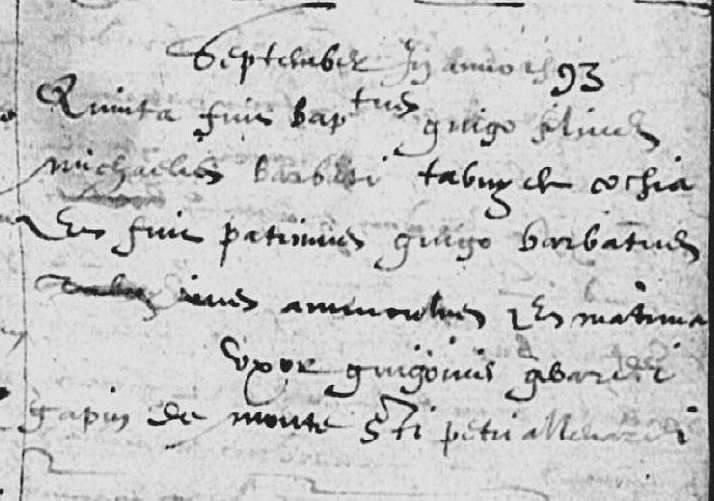 September In anno 1593
Quinta fuit bap tus guigo filius
michaelis barberi et cochia
Et fuit patrinus guigo barbatus
eius avunculus Et matrina
Vxor guigonis
gapin de monte Sti petri